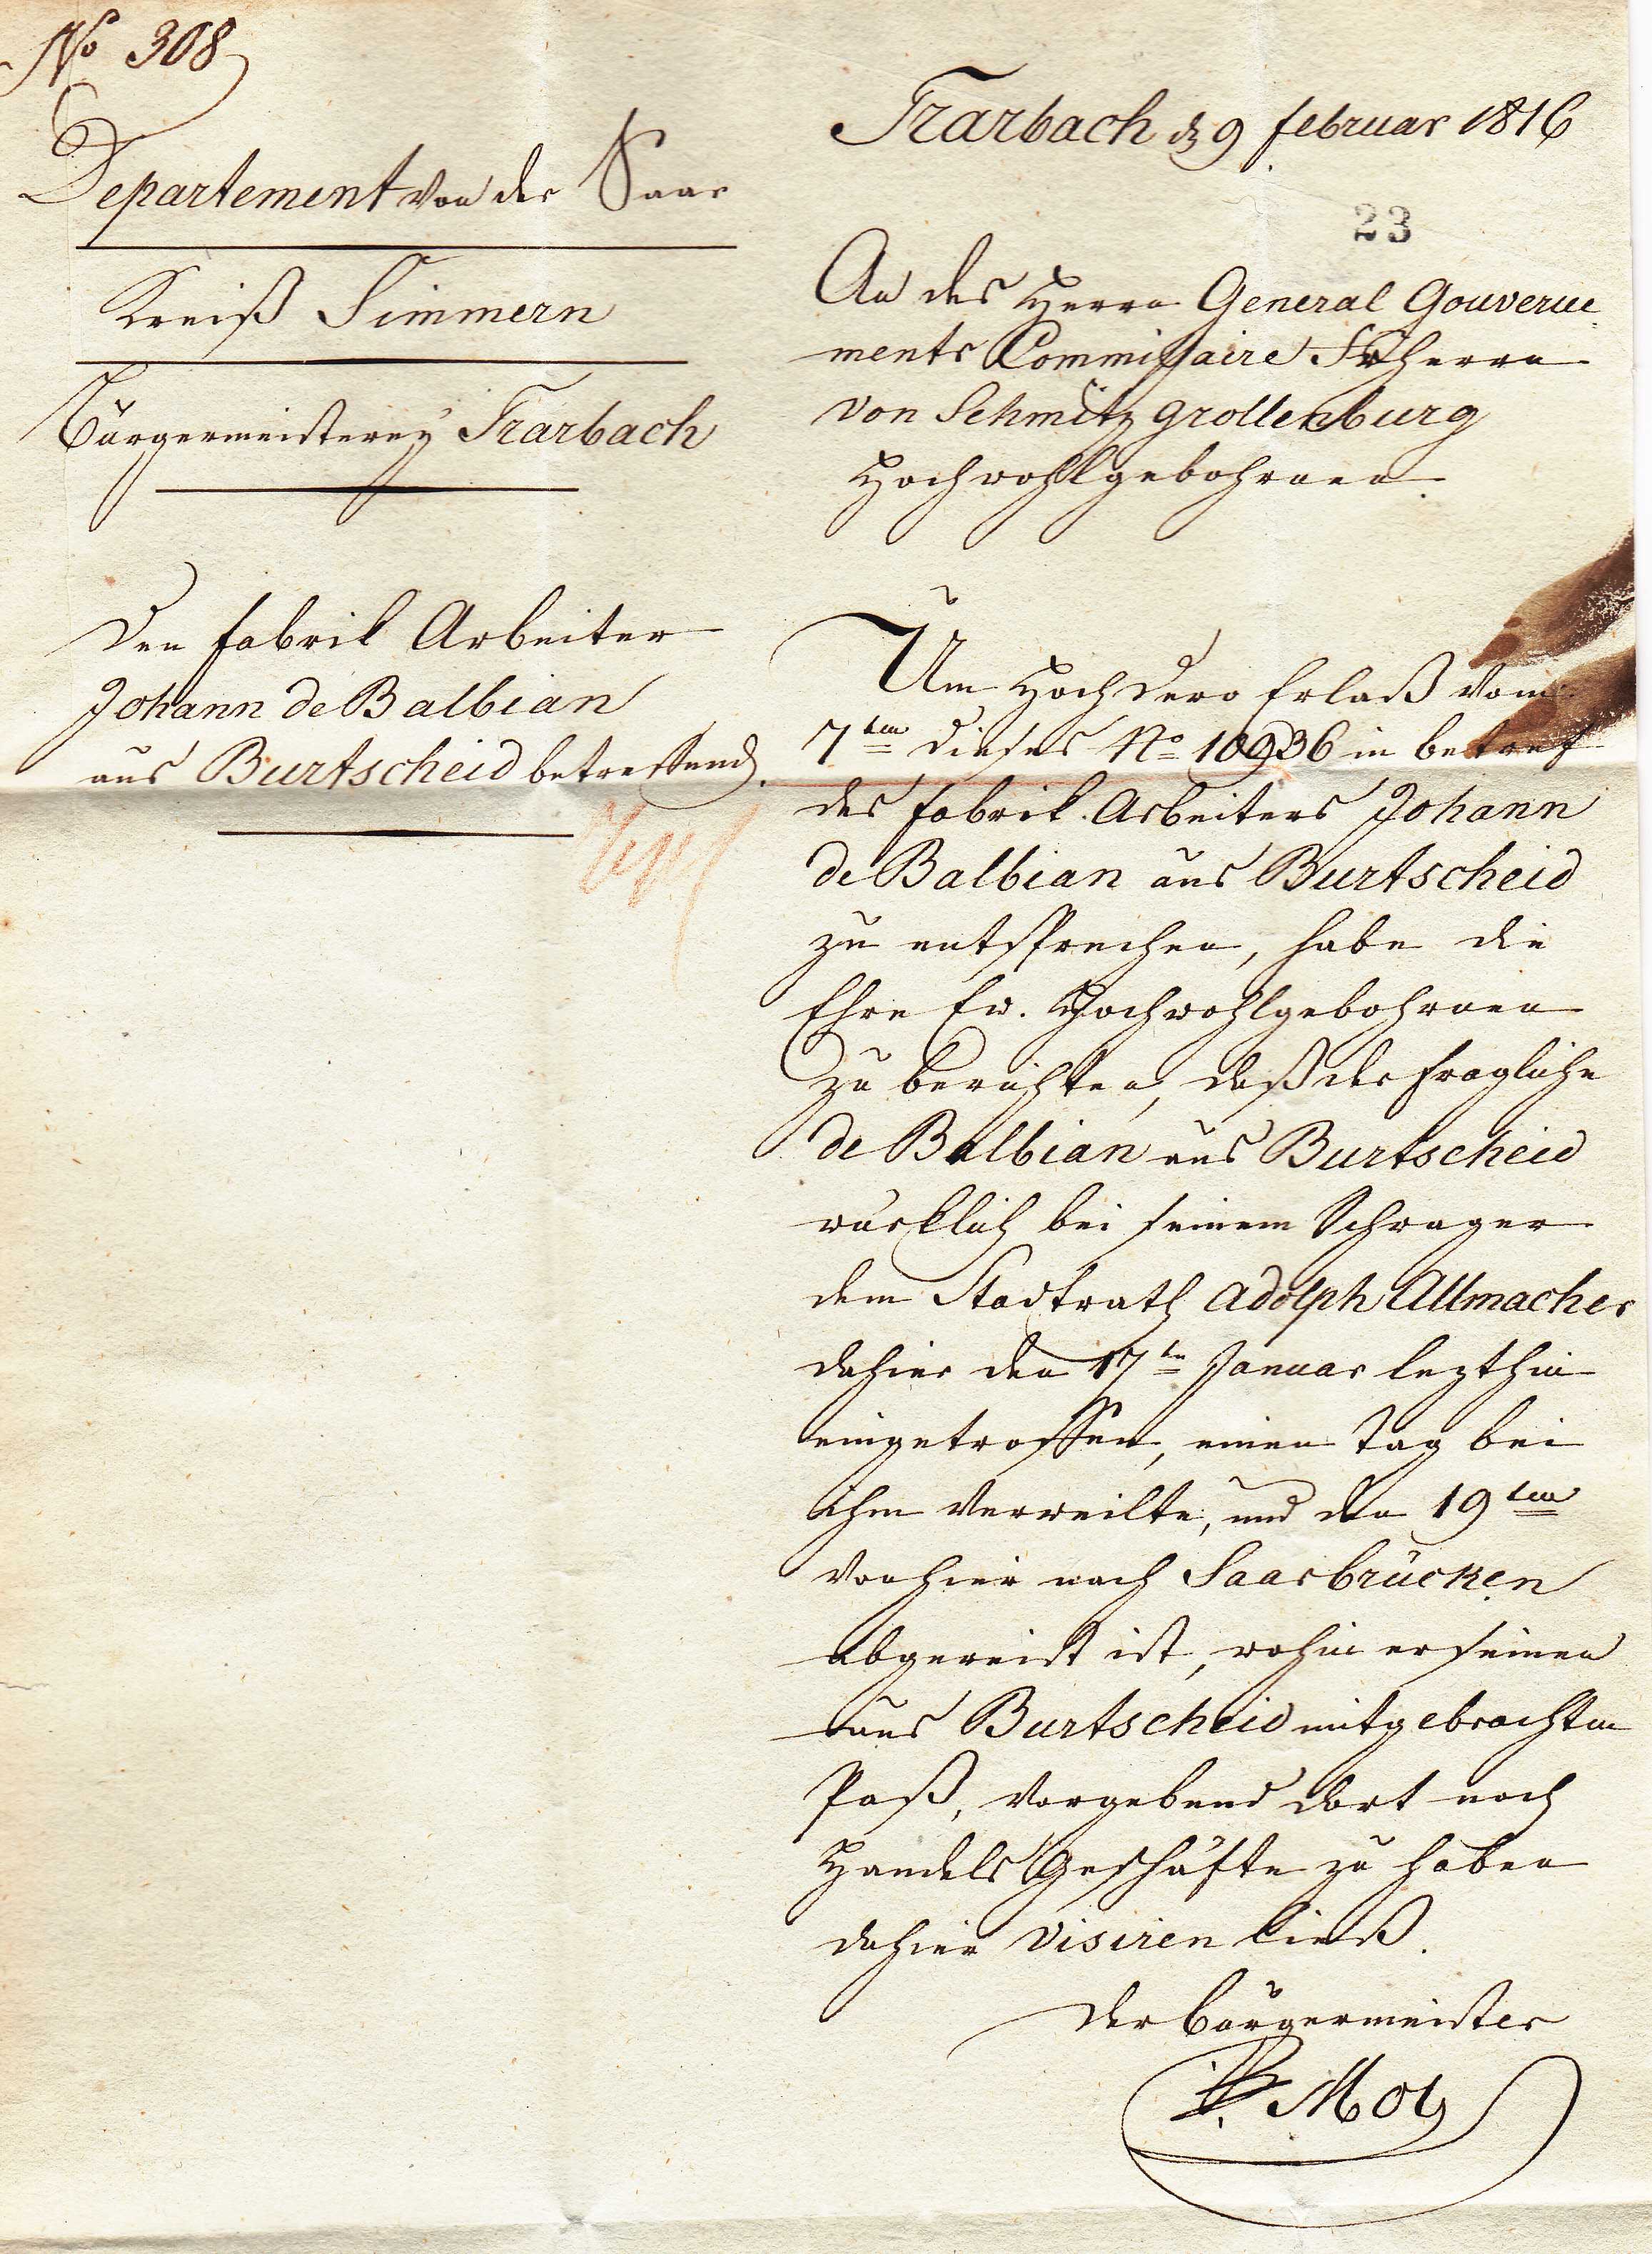 No 308
Departement von der Saar
Kreiß Simmern
Bürgermeisterey Trarbach
Den Fabrik Arbeiter
Johann de Balbian
aus Burtscheid betreffend.
Trarbach d 9 februar 1816
23
An des Herrn General Gouverne
ments Commissaire Frherrn
von Schmitz Grollenburg
Hochwohlgebohrnen
Um Hoch Dero Erlaß vom
7ten dieses No 10936 in betref
des Fabrik Arbeiters Johann
de Balbian aus Burtscheid
zu entsprechen, habe die
Ehre Ew. Hochwohlgebohrnen
zu berichten, daß der fragliche
de Balbian aus Burtscheid
würklich bei seinem Schwager
dem Stadtrath Adolph Allmacher
dahier den 17ten Januar lezthin
eingetroffen, einen Tag bei
ihm verweilte, und den 19ten
von hier nach Saarbrücken
abgereist ist, wohin er seinen
aus Burtscheid mitgebrachten
Paß, vorgebend dort noch
Handels Geschäfte zu haben
dahier visiren ließ.
Der Bürgermeister